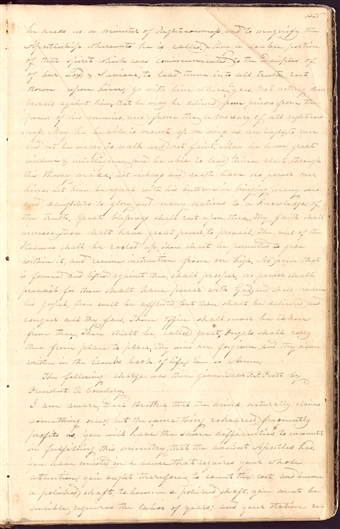 he needs as a minister of righteousness, and to magnify his
Apostleship whereunto he is called. May a double portion
of that Spirit which was communicated to the disciples of
of our Lord & Saviour, to lead them into all truth rest
down upon him, go with him where he goes, that nothing shall
prevail against him, that he may be delivered from prison from the
power of his enemies, and from the adversary of all righteous-
ness. May he be able to mount up on wings as an eagle, to run
and not be weary, to walk and not faint. May he have great
wisdom & intelligence, and be able to lead thine elect through
this thorny maze. Let sickness and death have no power over
him, let him be equal with his brethren in bringing many sons
and daughters to glory, and many nations to a knowledge of
the truth. Great blessings shall rest upon thee. Thy faith shall
increase; thou shalt have great power to prevail. The veil of the
Heavens shall be rolled up, thou shalt be permitted to gaze
within it, and receive instruction from on high. No arm that
is formed and lifted against thee, shall prosper, no power shall
prevail for thou shalt have power with God and shall proclaim
his gospel, thou wilt be afflicted, but thou shalt be delivered, and
conquer all thy foes. Thine office shall never be taken
from thee. Thou shalt be called great, Angels shall carry
thee from place to place. Thy sins are forgiven, and thy name
written in the Lambs book of life, even so Amen.
The following charge was then given Elder P. P. Pratt by
President O. Cowdery.
I am aware, Dear Brother that the mind naturally claims
something new, but the same thing rehearsed frequently
profits us. You will have the same difficulties to encounter
in fulfilling this ministry, that the ancient Apostles had.
You have enlisted in a cause that requires your whole
attention; you ought therefore, to count the cost, and become
a polished shaft, to become a polished shaft, you must be
sensible, requires the labor of years; and your station